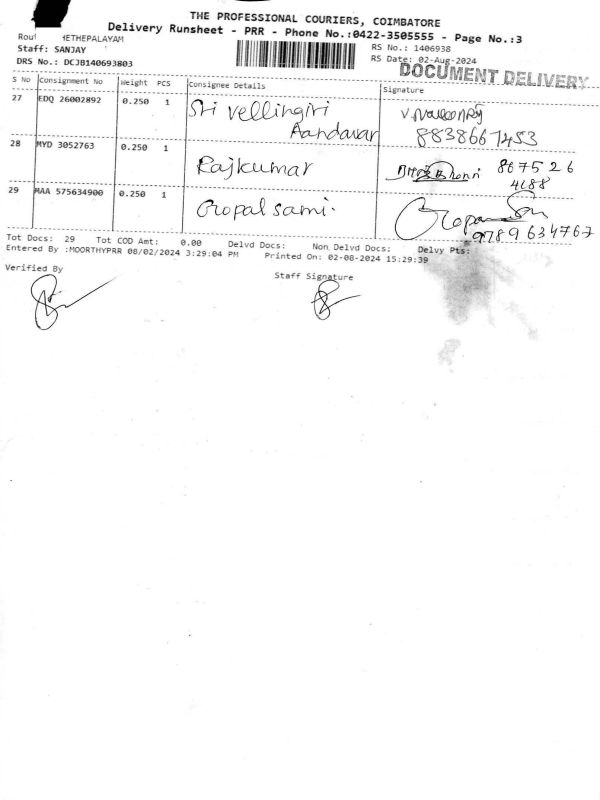 THE PROFESSIONAL COURIERS, COIMBATORE
Delivery Runsheet - PRR - Phone No.:0422-3505555 - Page No.:3
Rout HETHEPALAYAM
Staff: SANJAY
DRS No.: DCJB140693803
RS No.: 1406938
RS Date: 02-Aug-2024
DOCUMENT DELIVERY
S No Consignment No Weight PCS Consignee Details Signature
27 EDQ 26002892 0.250 1 Sri Vellingiri
Aandavar
8838667453
28 MYD 3052763 0.250 1 Rajkumar 867526
4688
29 MAA 575634900 0.250 1 Gopalsami.
9789634767
Tot Docs: 29 Tot COD Amt: 0.00 Delvd Docs: Non Delvd Docs: Delvy Pts:
Entered By :MOORTHYPRR 08/02/2024 3:29:04 PM Printed On: 02-08-2024 15:29:39
Verified By Staff Signature